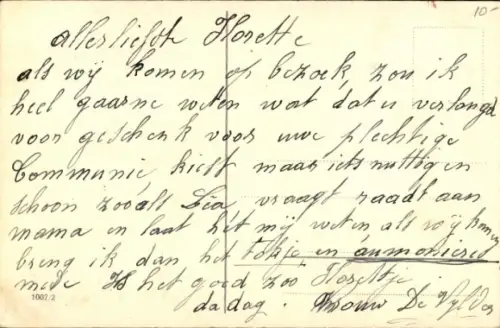 10-
allerliefste Florette
als wij komen op bezoek, zou ik
heel gaarne weten wat dat u verlangd
voor geschenk voor uwe plechtige
Communie, kiest maar iets nuttig en
schoon zooals Léa, vraagt raadt aan
mama en laat het mij weten als wij komen
breng ik dan het en aumonière
mede Is het goed zoo Florettje
dadag. Vrouw De Vylder
1007/2